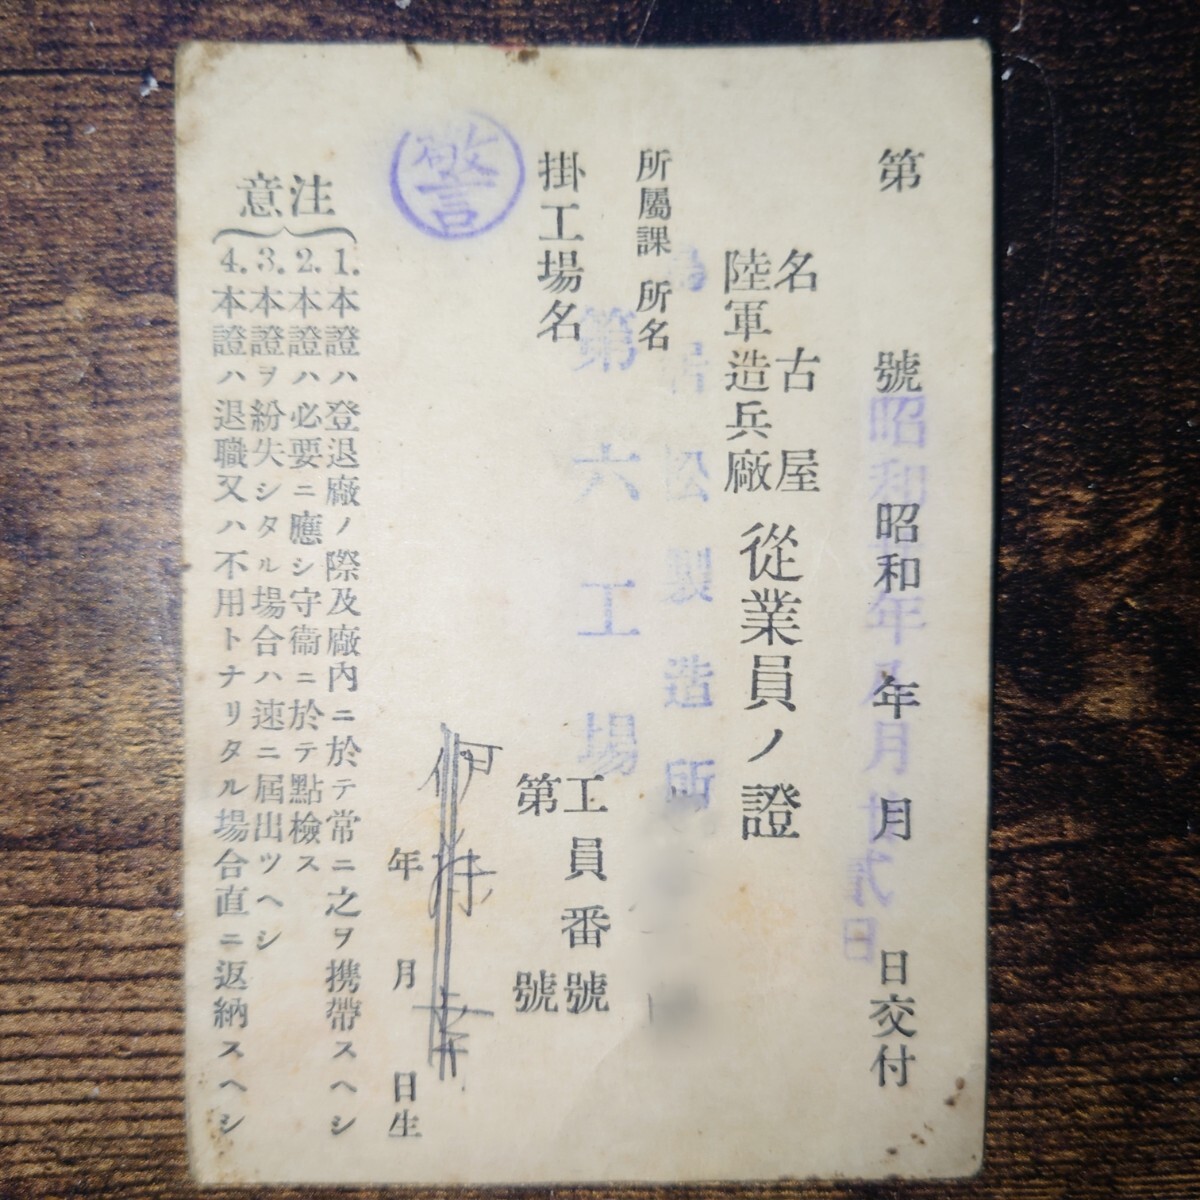 第 號 昭和 年 月 日交付
昭和 年 月 貳日
名古屋
陸軍造兵廠
從業員ノ證
所屬課所名
鳥居松製造所
掛工場名
第六工場
工員番號
第 號
年 月 日生
警
注意
1. 本證ハ登退廠ノ際及廠內ニ於テ常ニ之ヲ携帶スヘシ
2. 本證ハ必要ニ應シ守衞ニ於テ點檢ス
3. 本證ヲ紛失シタル場合ハ速ニ屆出ツヘシ
4. 本證ハ退職又ハ不用トナリタル場合直ニ返納スヘシ